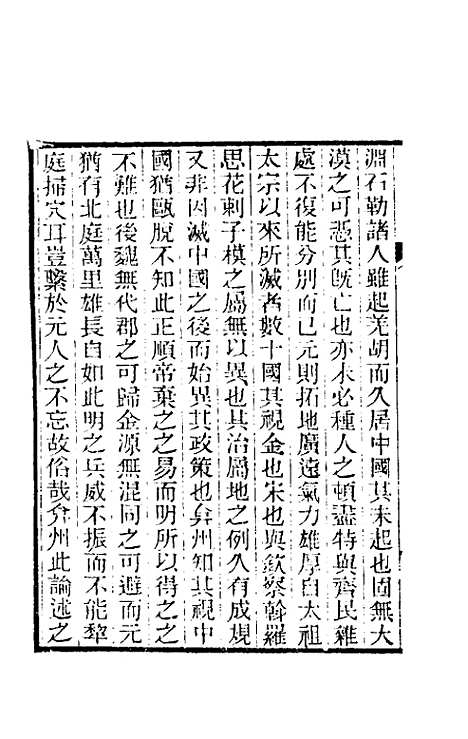 淵石勒諸人雖起羌胡而久居中國其未起也固無大
漠之可憑其既亡也亦未必種人之頓盡特與齊民雜
處不復能分別而已元則拓地廣遠氣力雄厚自太祖
太宗以來所滅者數十國其視金也宋也與欽察斡羅
思花剌子模之屬無以異也其治屬地之例久有成規
又非因滅中國之後而始異其政策也弇州知其視中
國猶甌脫不知此正順帝棄之之易而明所以得之之
不難也後魏無代郡之可歸金源無混同之可避而元
猶有北庭萬里雄長自如此明之兵威不振而不能犂
庭掃穴耳豈繫於元人之不忘故俗哉弇州此論述之